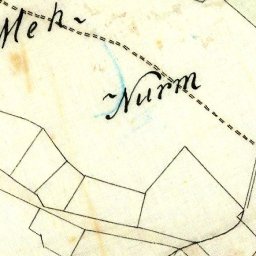 Mek~
~Nurm